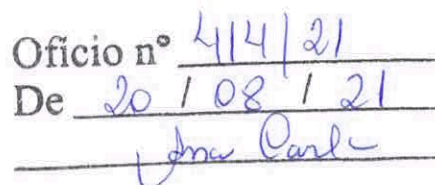 Ofício nº 414/21
De 20 / 08 / 21
Ana Carla